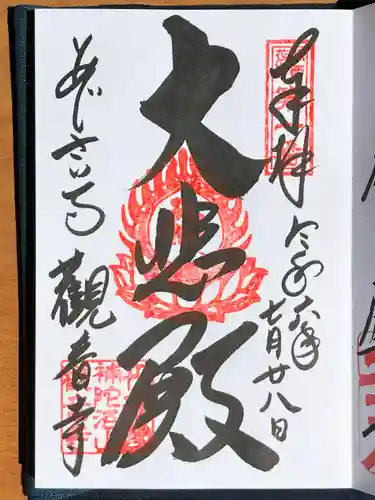 奉拝
令和六年
七月廿八日
大悲殿
あじさい寺
觀音寺
補陀洛山